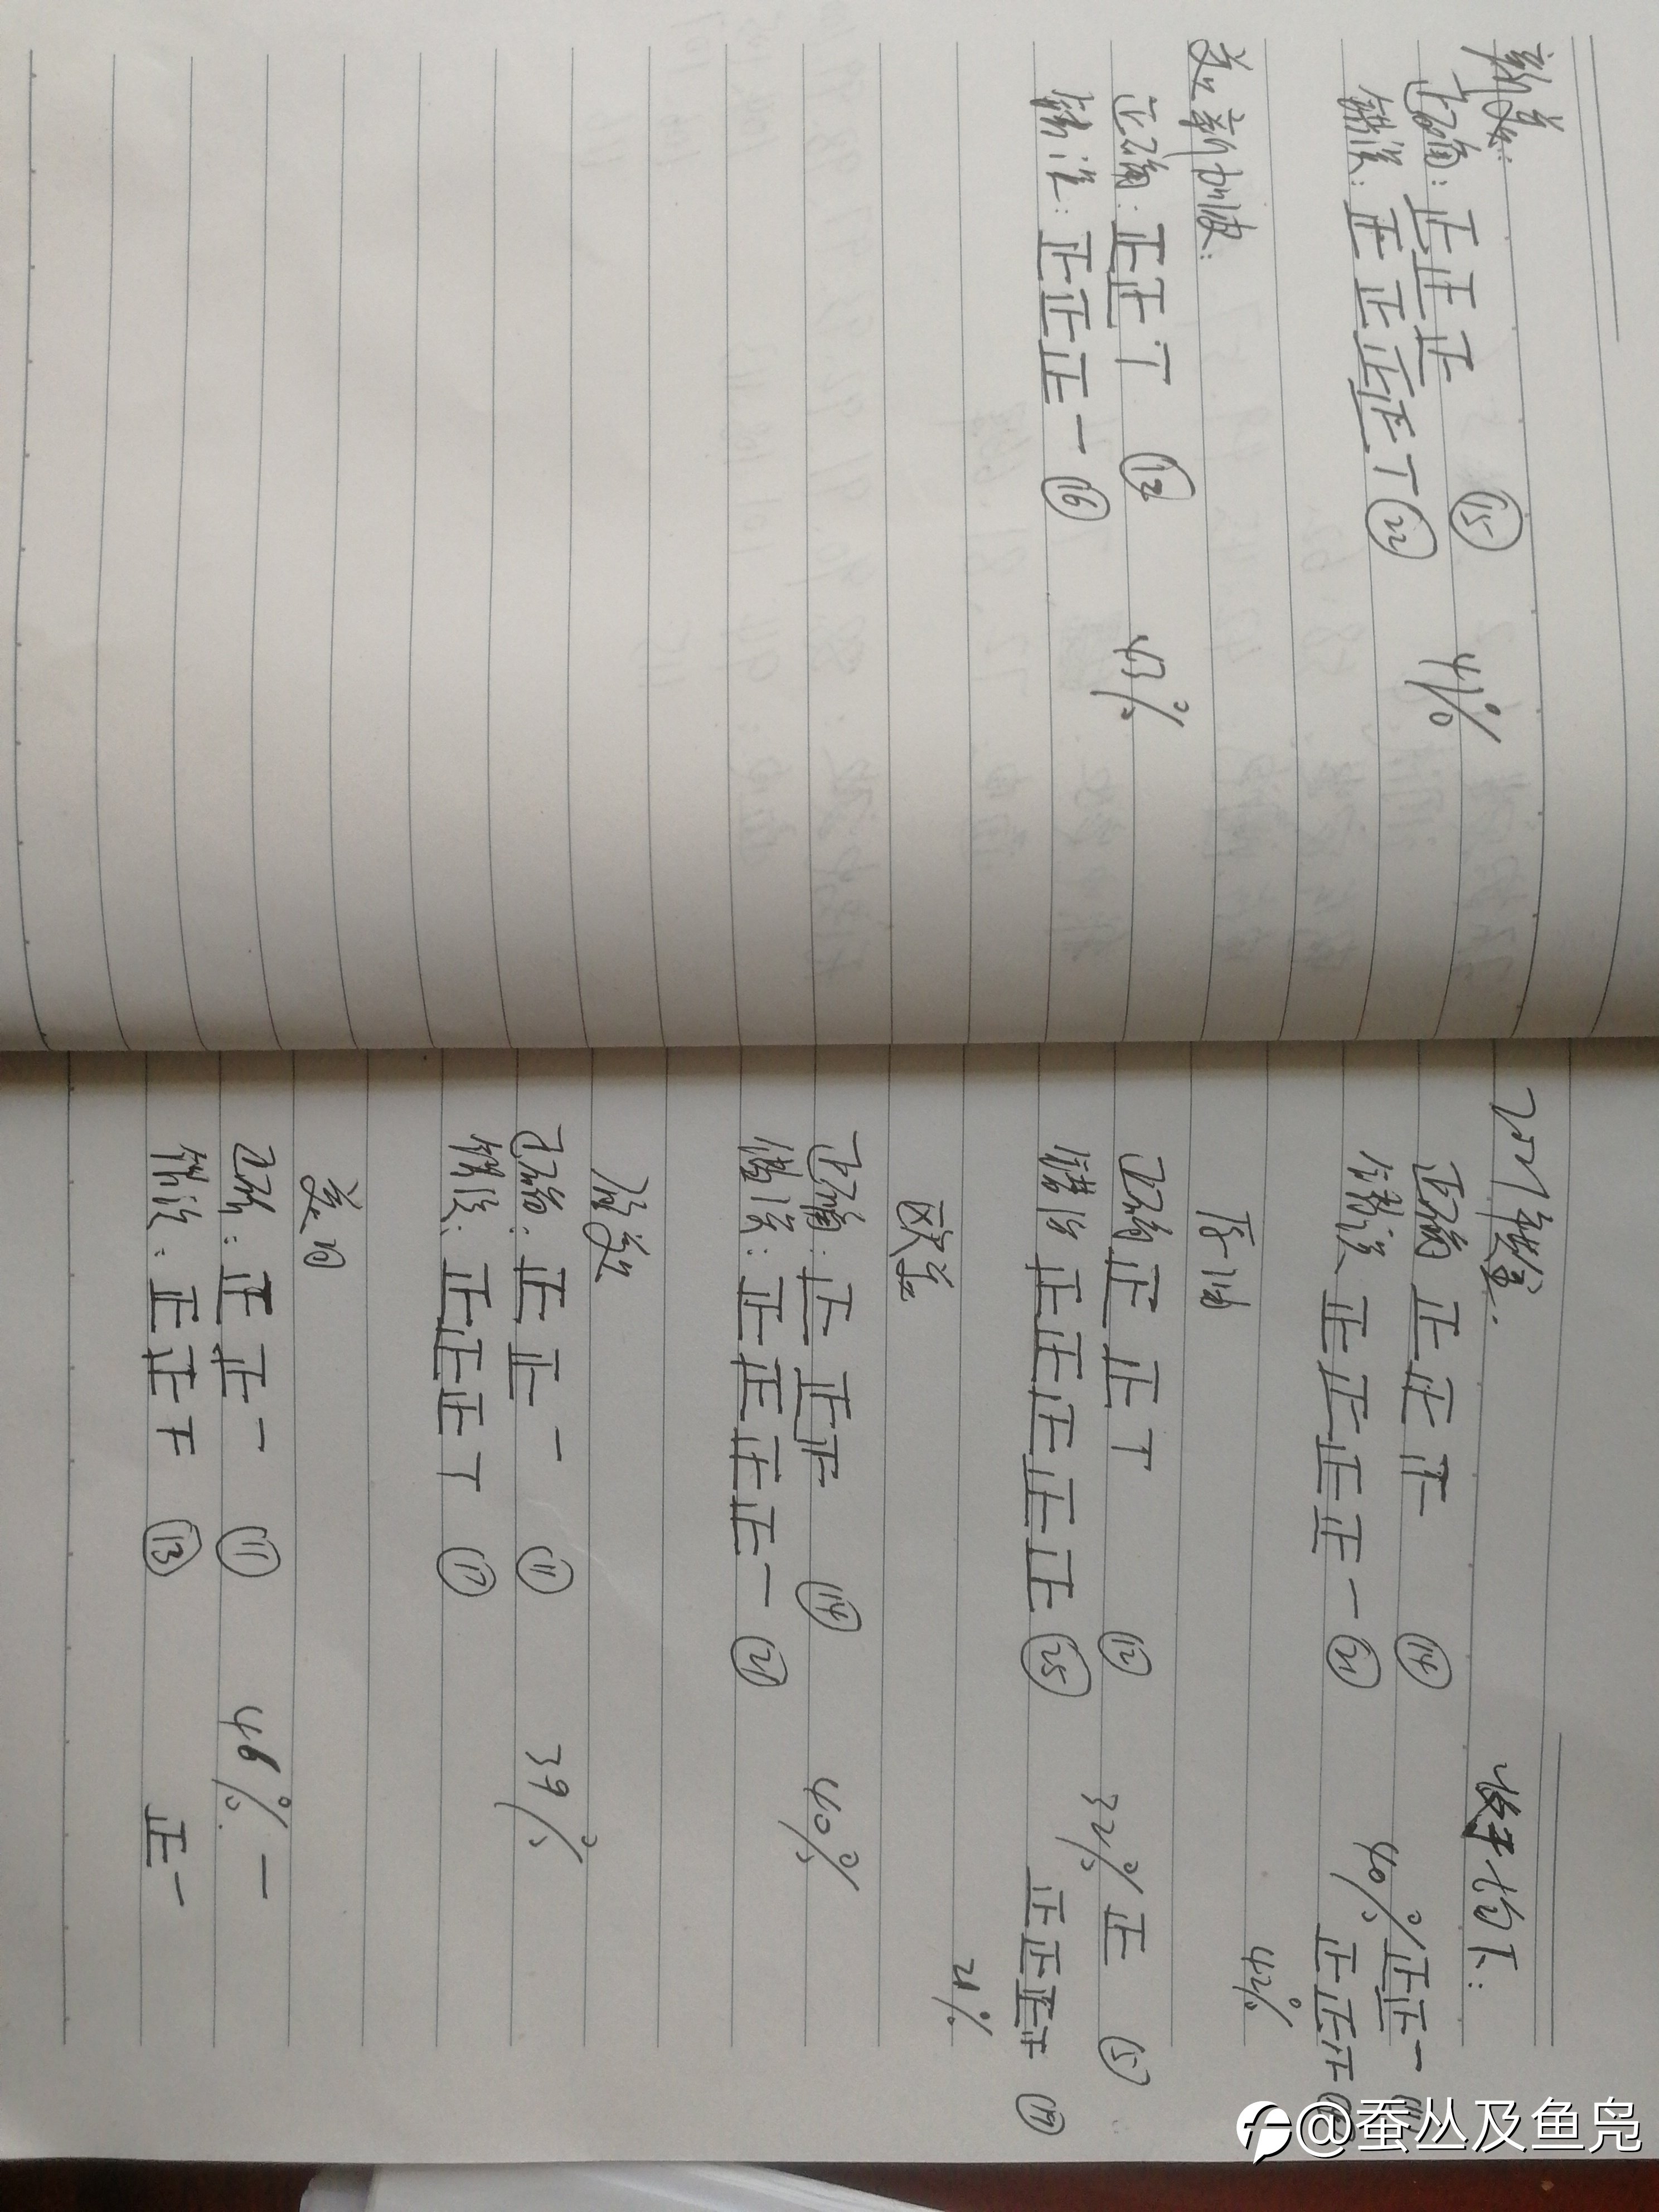 新美:
正确: 正正正 ⑮ 41%
错误: 正正正正丅 ㉒
美新加减:
正确: 正正丅 ⑫ 43%
错误: 正正正一 ⑯
正确 正正正 ⑭ 40% 正正一 ⑪
错误 正正正正一 ㉑ 正正正
42%
原油
正确 正正丅 ⑫ 32% 正 ⑤
错误 正正正正正 ㉕ 正正正 ⑲
21%
欧美
正确: 正正正 ⑭ 40%
错误: 正正正正一 ㉑
正确: 正正一 ⑪ 39%
错误: 正正正丅 ⑰
美日
正确: 正正一 ⑪ 46% 一
错误: 正正下 ⑬ 正一
@蚕丛及鱼凫